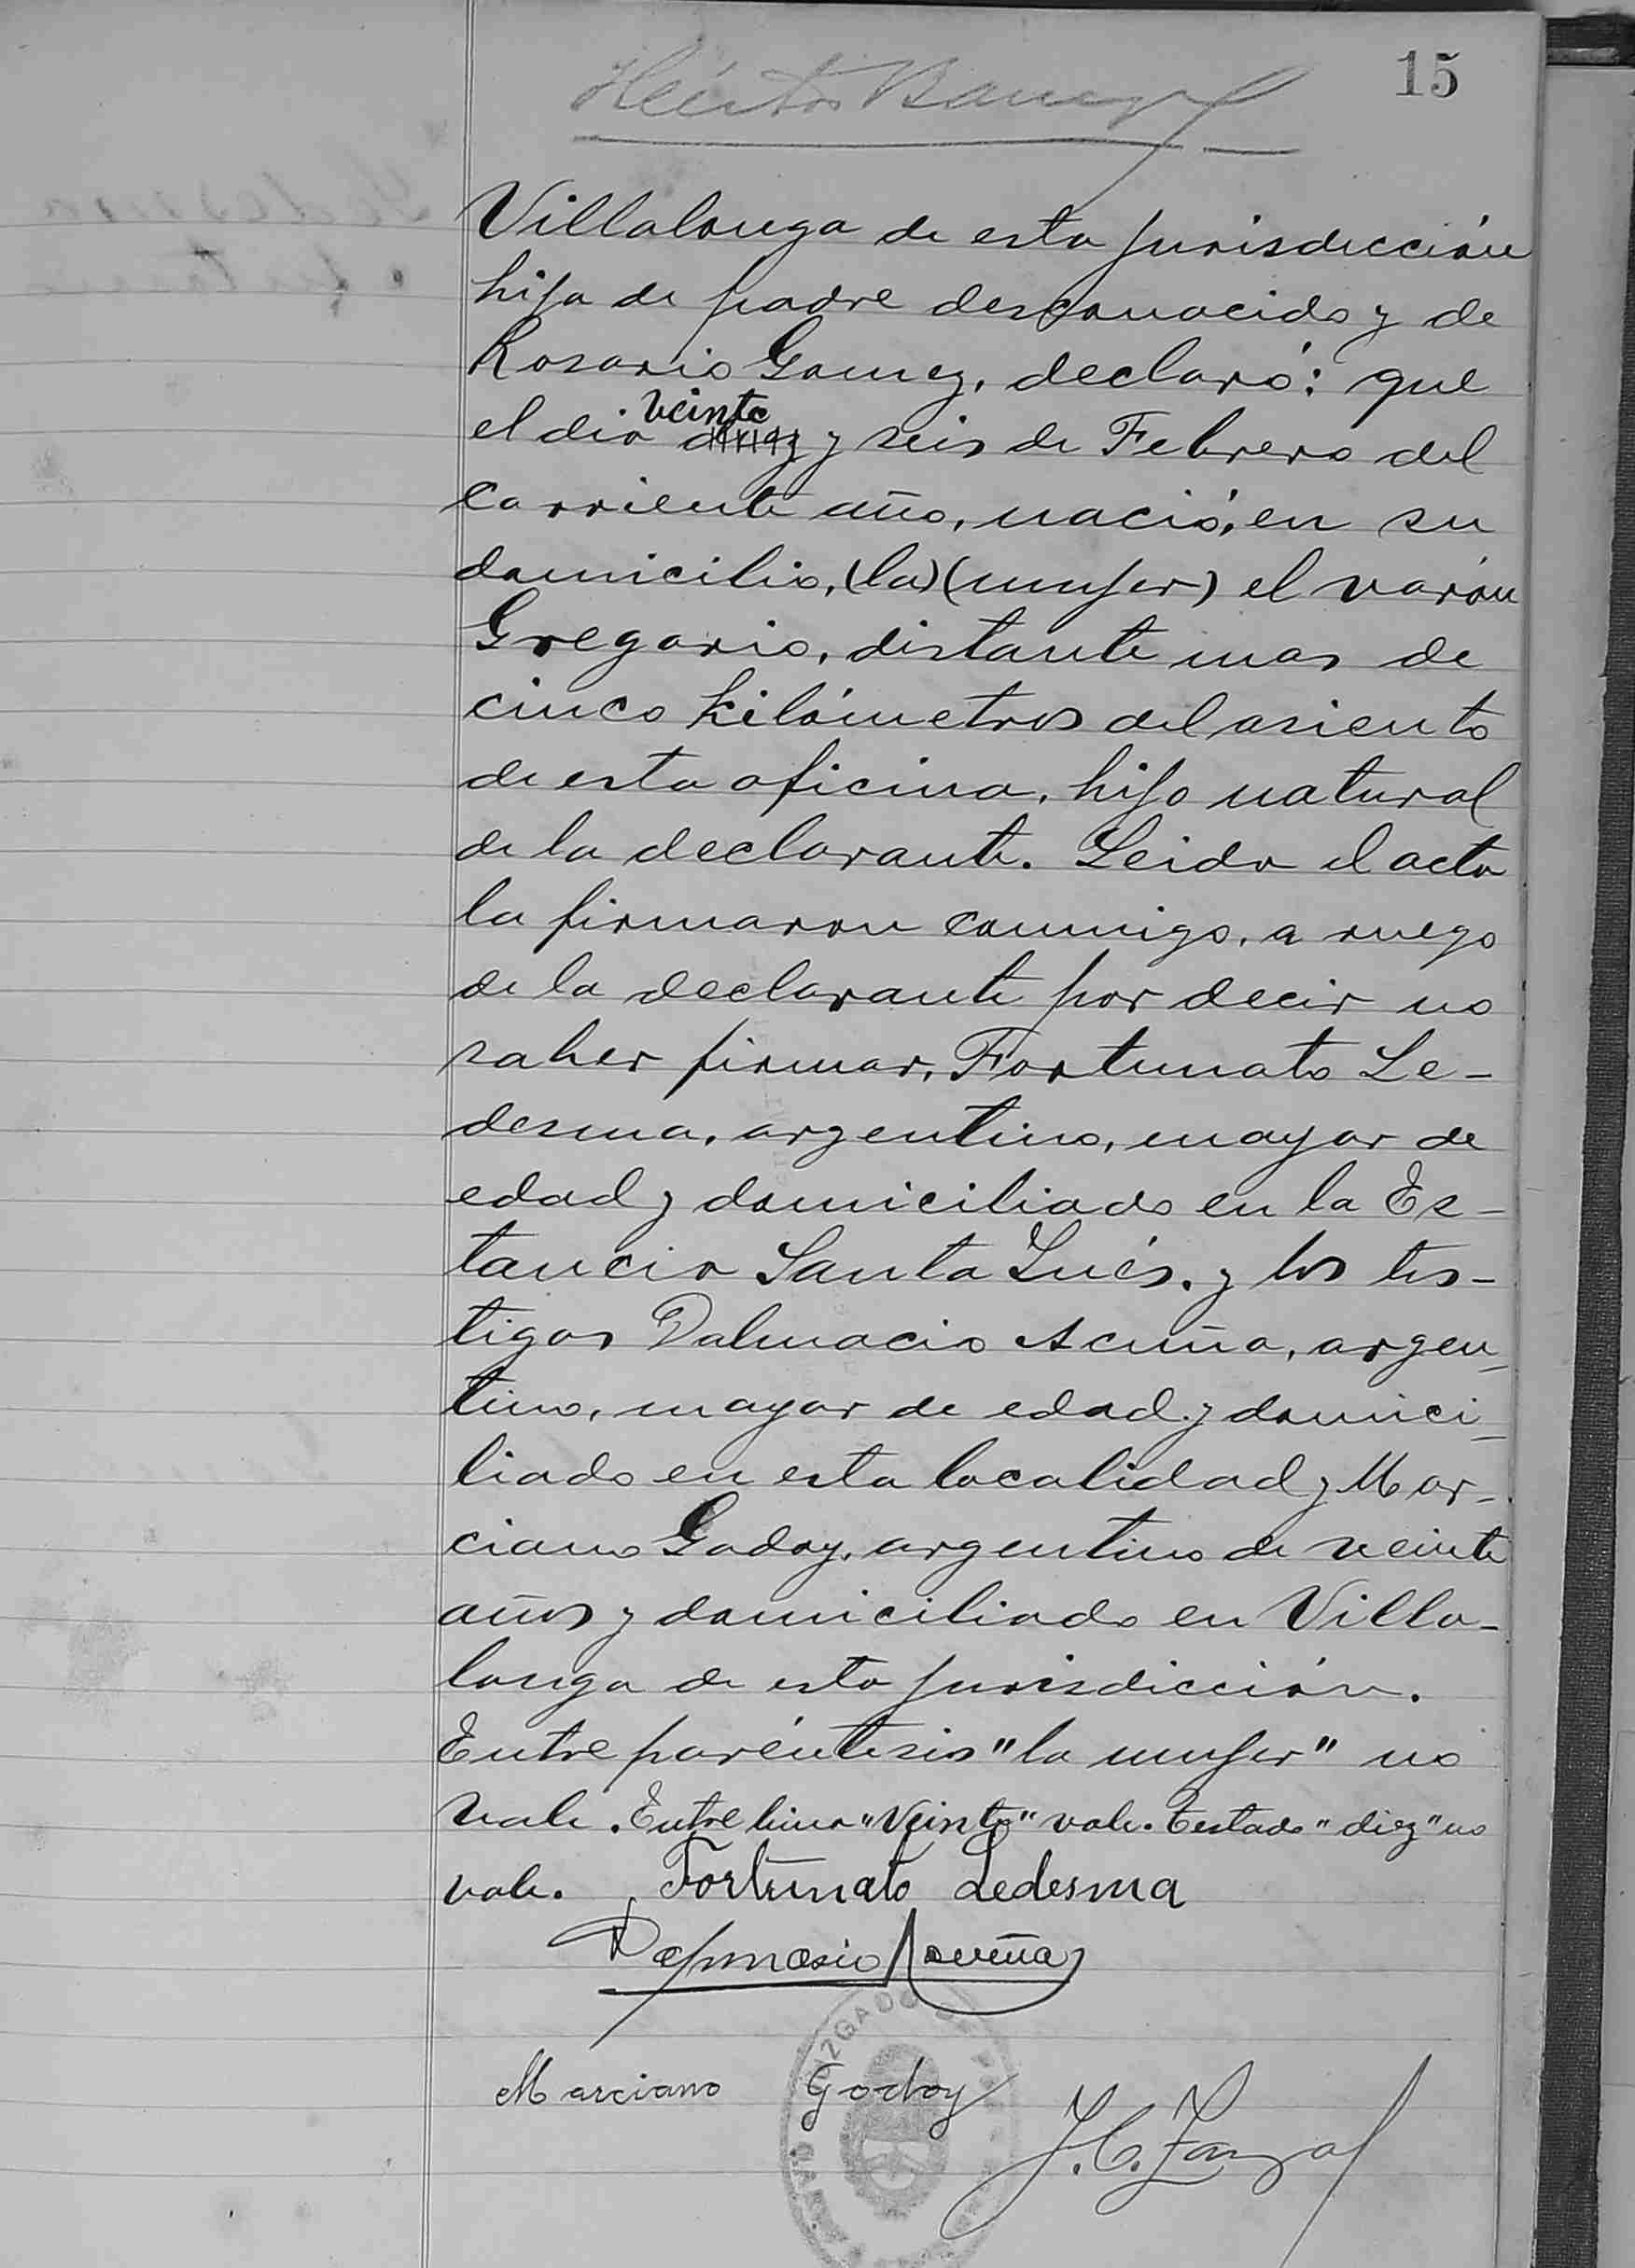 15
Villalonga de esta jurisdicción
hija de padre desconocido y de
Rosario Gomez, declaró: que
veinte
el dia diez y seis de Febrero del
corriente año, nació, en su
domicilio, (la) (mujer) el varón
Gregorio, distante mas de
cinco kilómetros del asiento
de esta oficina, hijo natural
de la declarante. Leida el acta
la firmaron conmigo, a ruego
de la declarante por decir no
saber firmar, Fortunato Le-
desma, argentino, mayor de
edad y domiciliado en la Es-
tancia Santa Inés. y los tes-
tigos Dalmacio Acuña, argen-
tino, mayor de edad y domici-
liado en esta localidad y Mar-
ciano Godoy, argentino de veinte
años y domiciliado en Villa-
longa de esta jurisdicción.
Entre paréntesis "la mujer" no
vale. Entre linea "Veinte" vale. Testado "diez" no
vale. Fortunato Ledesma
Dalmasio Acuña
Marciano Godoy
J. C.
JUZGADO